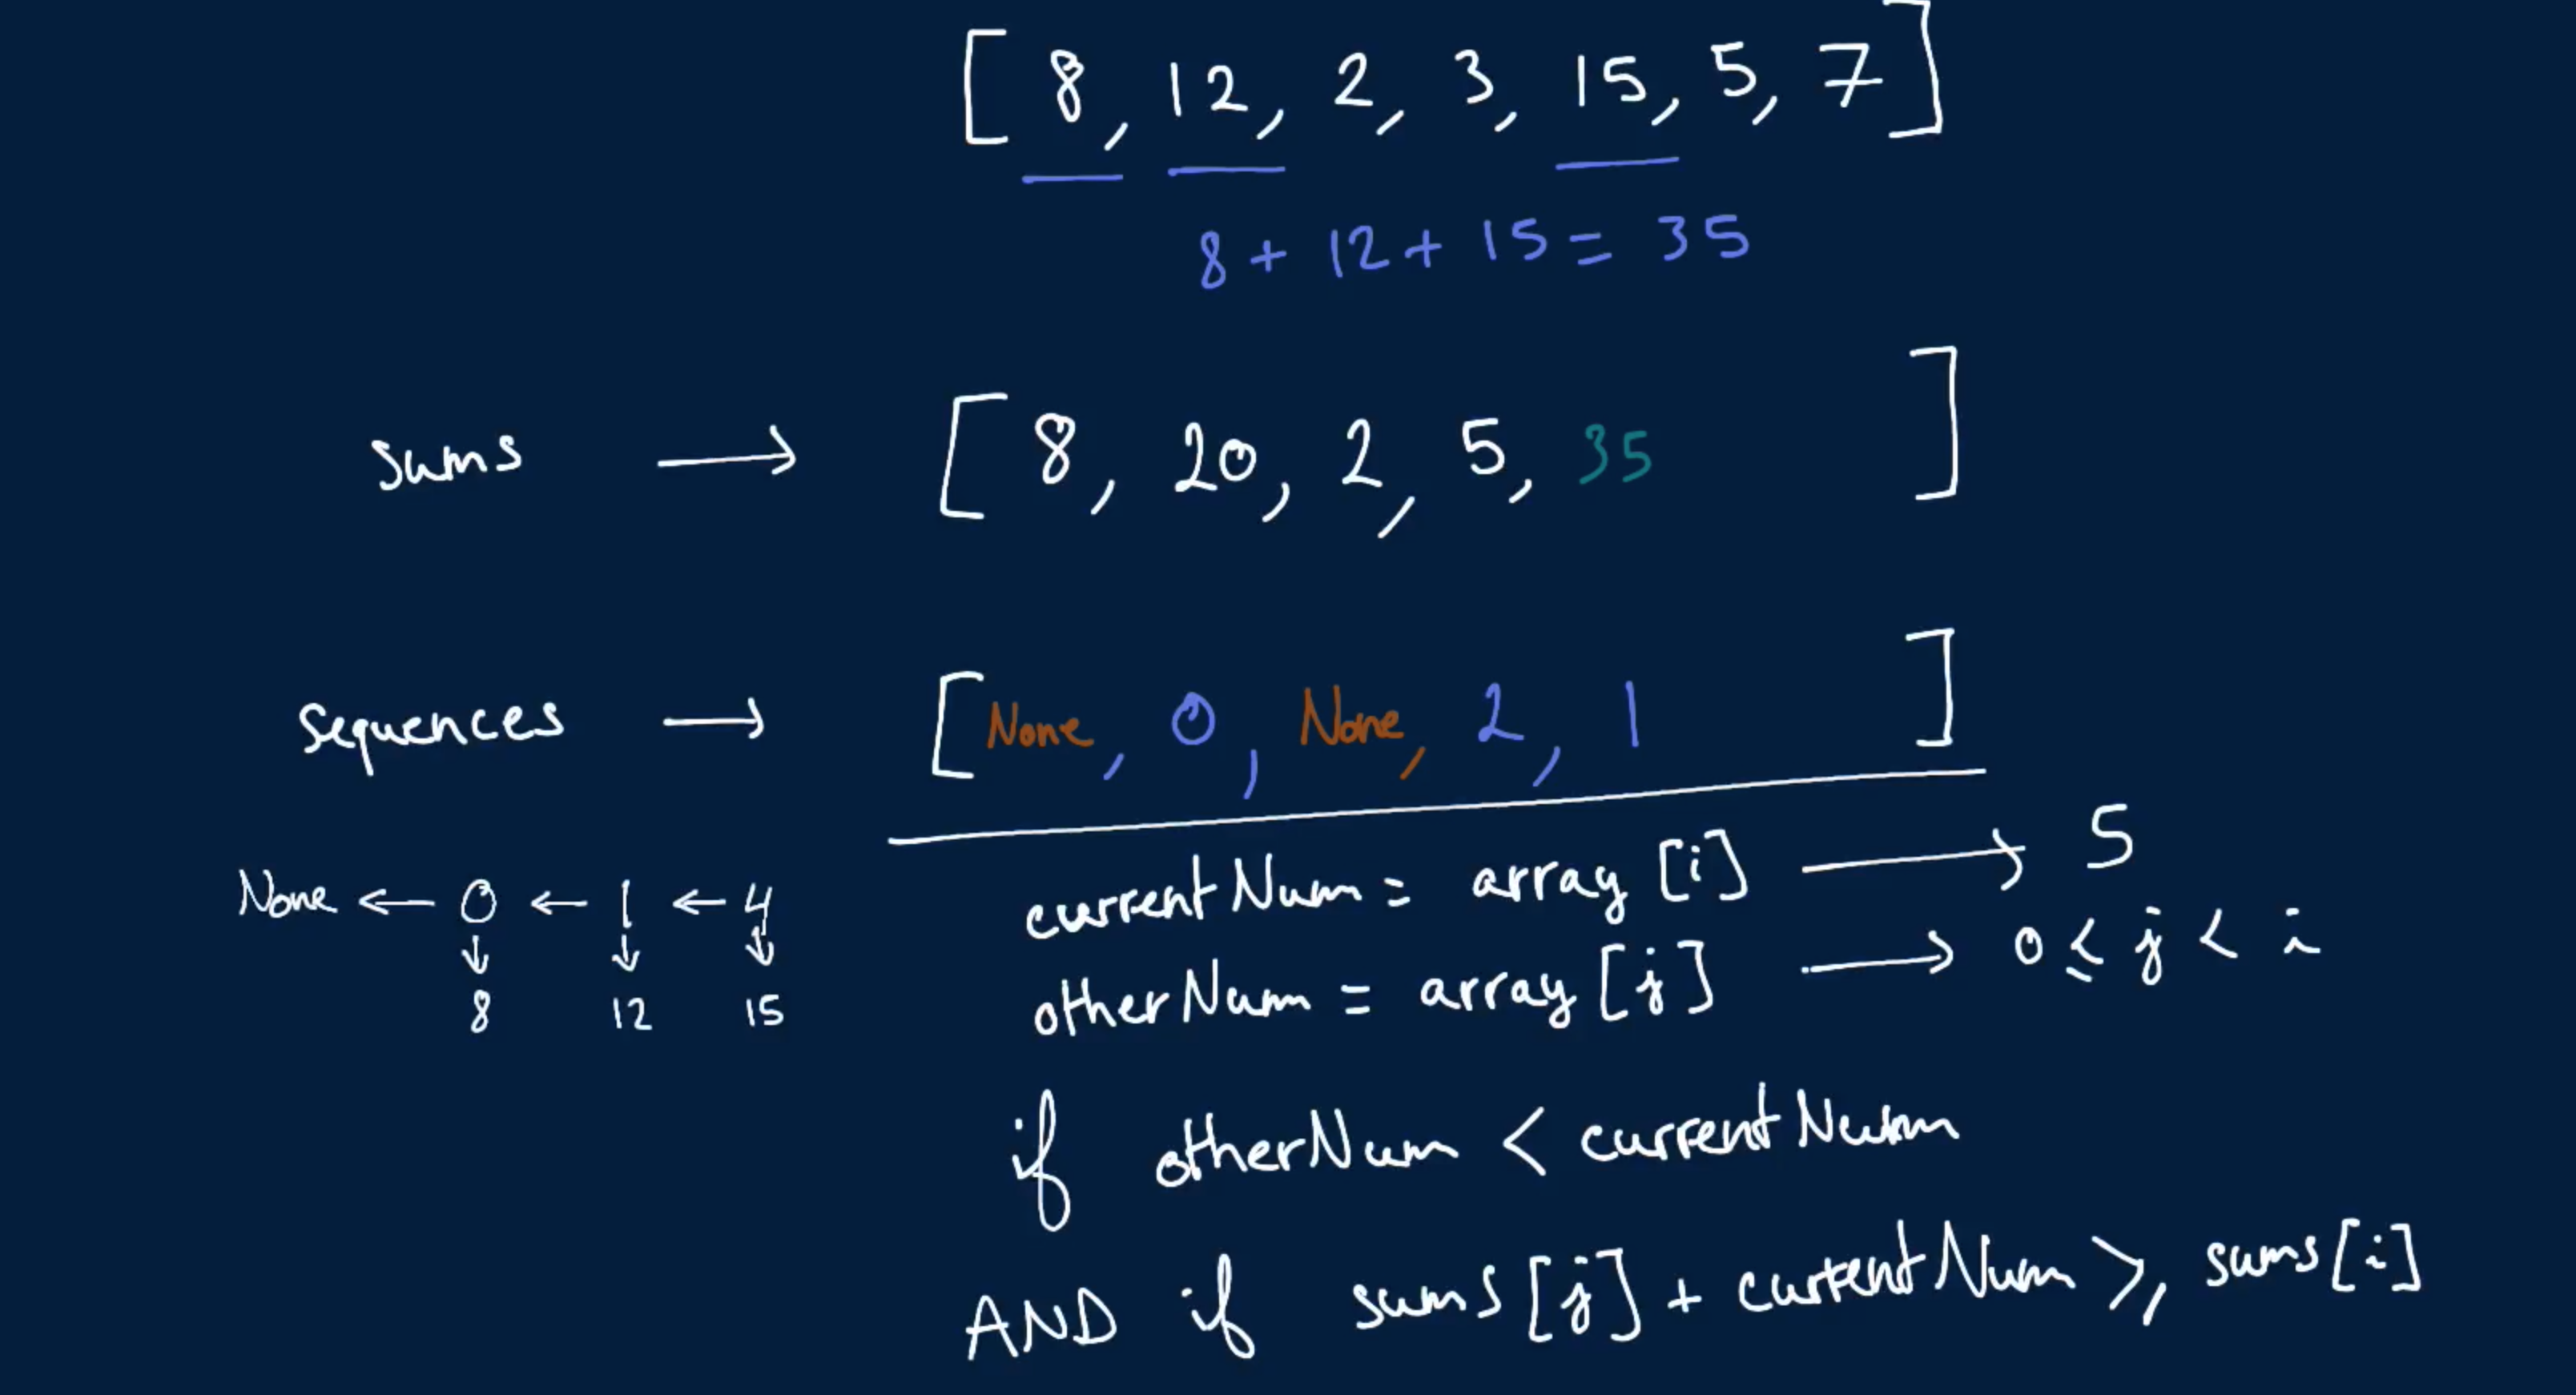 [ 8, 12, 2, 3, 15, 5, 7 ]
8 + 12 + 15 = 35
sums → [ 8, 20, 2, 5, 35 ]
sequences → [ None, 0, None, 2, 1 ]
None ← 0 ← 1 ← 4
↓ ↓ ↓
8 12 15
currentNum = array [i] → 5
otherNum = array [j] → 0 ≤ j < i
if otherNum < currentNum
AND if sums [j] + currentNum ≥ sums [i]